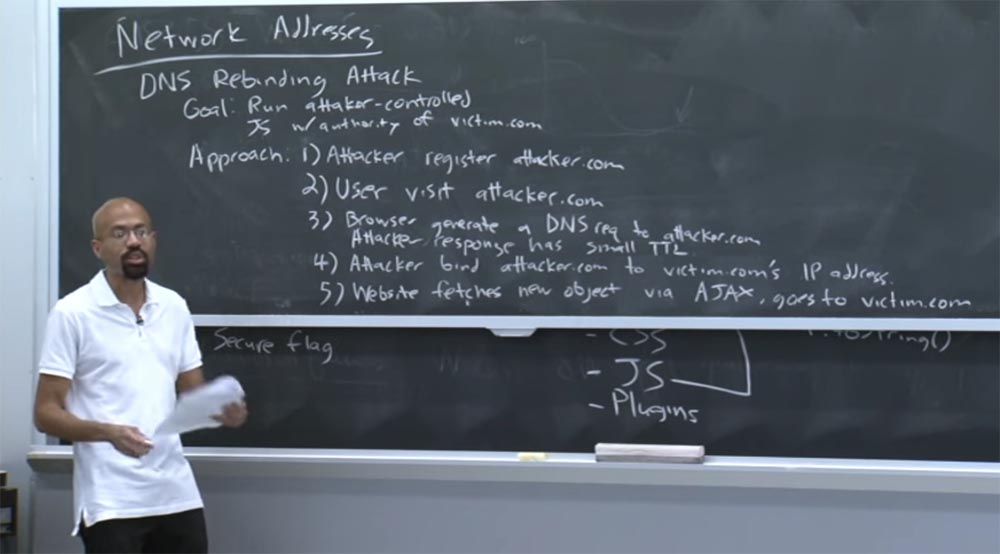 Network Addresses
DNS Rebinding Attack
Goal: Run attaker-controlled
JS w/authority of victim.com
Approach: 1) Attacker register attacker.com
2) User visit attacker.com
3) Browser generate a DNS req to attacker.com
Attacker response has small TTL
4) Attacker bind attacker.com to victim.com's IP address.
5) Website fetches new object via AJAX, goes to victim.com
Secure flag
- CSS
- JS
- Plugins
toString()